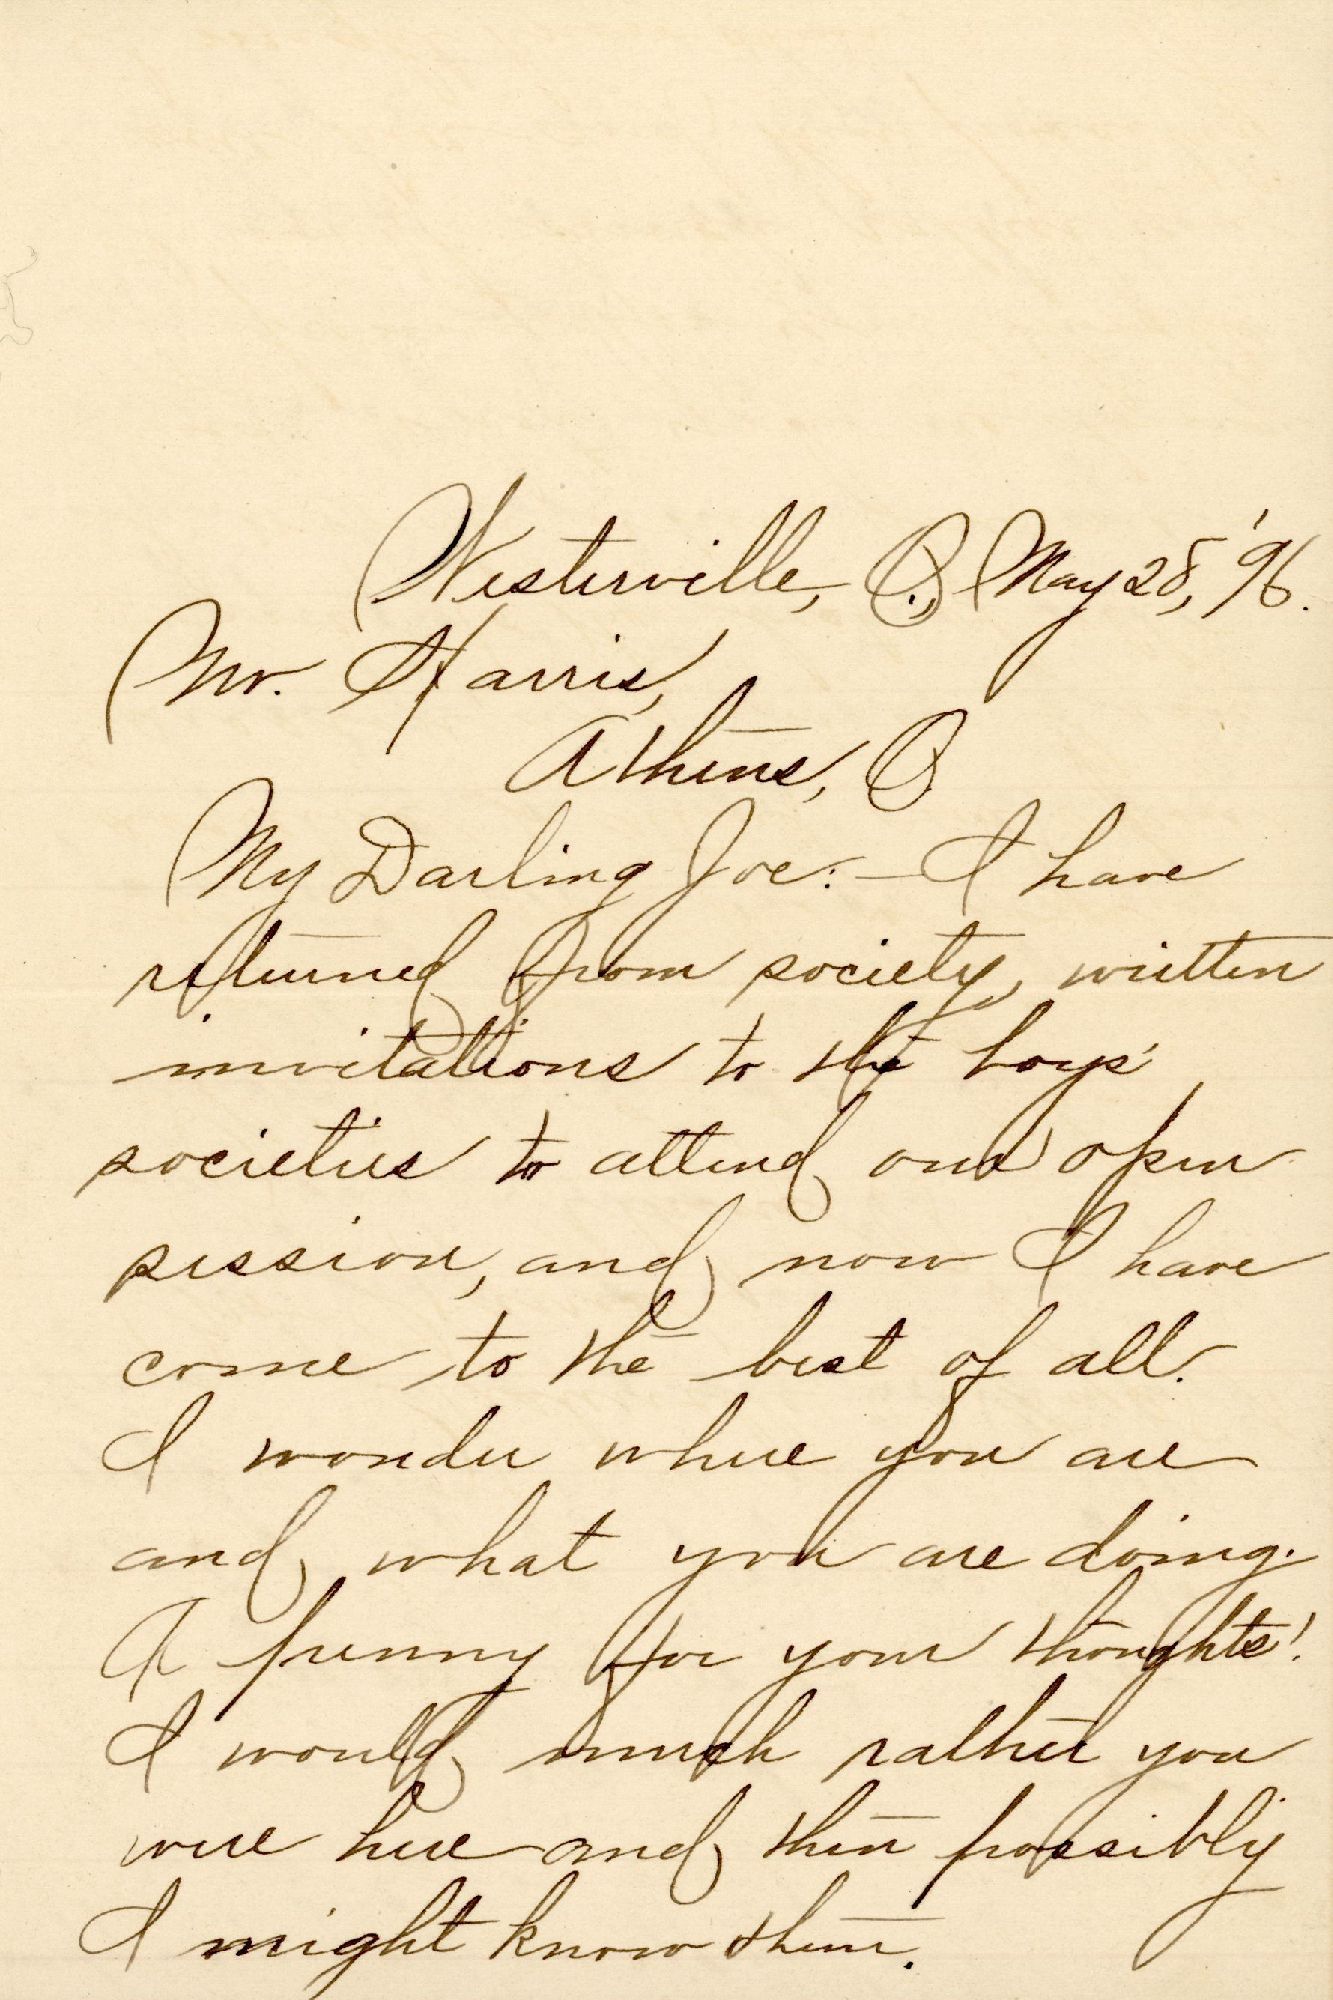 Westerville, O., May 28, '96.
Mr. Harris,
Athens, O
My Darling Joe:— I have
returned from society, written
invitations to the boys'
societies to attend our open
session, and now I have
come to the best of all.
I wonder where you are
and what you are doing.
A penny for your thoughts!
I would much rather you
were here and then possibly
I might know them.